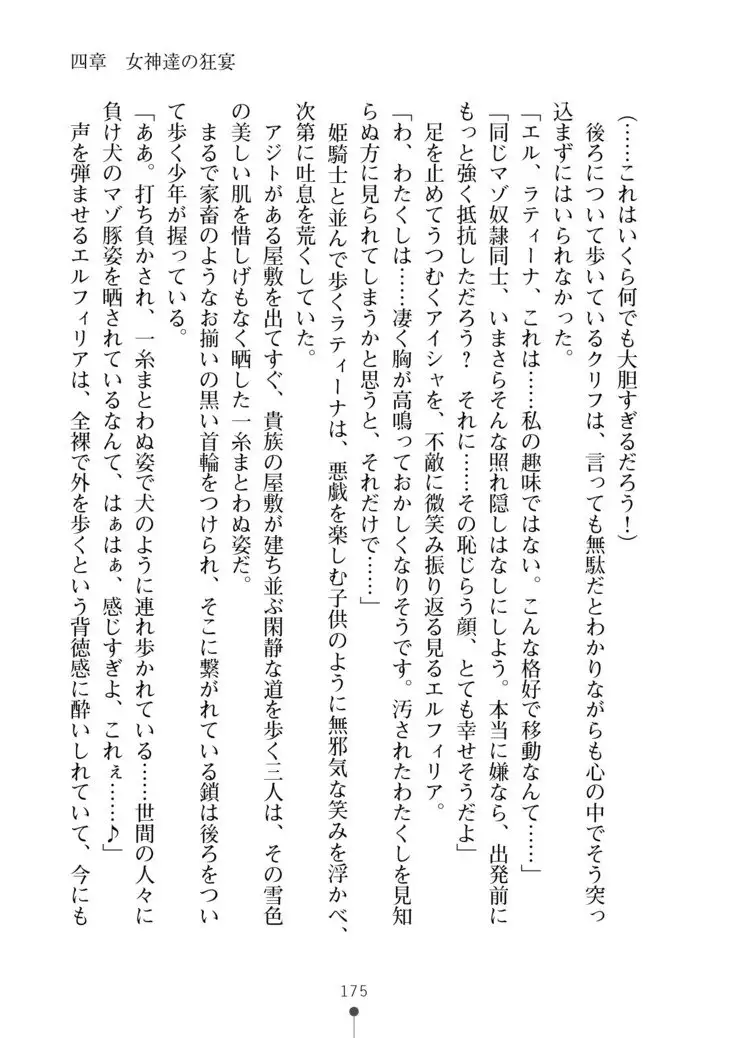 四章　女神達の狂宴
(……これはいくら何でも大胆すぎるだろう！)
後ろについて歩いているクリフは、言っても無駄だとわかりながらも心の中でそう突っ
込まずにはいられなかった。
「エル、ラティーナ、これは……私の趣味ではない。こんな格好で移動なんて……」
「同じマゾ奴隷同士、いまさらそんな照れ隠しはなしにしよう。本当に嫌なら、出発前に
もっと強く抵抗しただろう？　それに……その恥じらう顔、とても幸せそうだよ」
足を止めてうつむくアイシャを、不敵に微笑み振り返る見るエルフィリア。
「わ、わたくしは……凄く胸が高鳴っておかしくなりそうです。汚されたわたくしを見知
らぬ方に見られてしまうかと思うと、それだけで……」
姫騎士と並んで歩くラティーナは、悪戯を楽しむ子供のように無邪気な笑みを浮かべ、
次第に吐息を荒くしていた。
アジトがある屋敷を出てすぐ、貴族の屋敷が建ち並ぶ閑静な道を歩く三人は、その雪色
の美しい肌を惜しげもなく晒した一糸まとわぬ姿だ。
まるで家畜のようなお揃いの黒い首輪をつけられ、そこに繋がれている鎖は後ろをつい
て歩く少年が握っている。
「ああ。打ち負かされ、一糸まとわぬ姿で犬のように連れ歩かれている……世間の人々に
負け犬のマゾ豚姿を晒されているなんて、はぁはぁ、感じすぎよ、これぇ……♪」
声を弾ませるエルフィリアは、全裸で外を歩くという背徳感に酔いしれていて、今にも
175